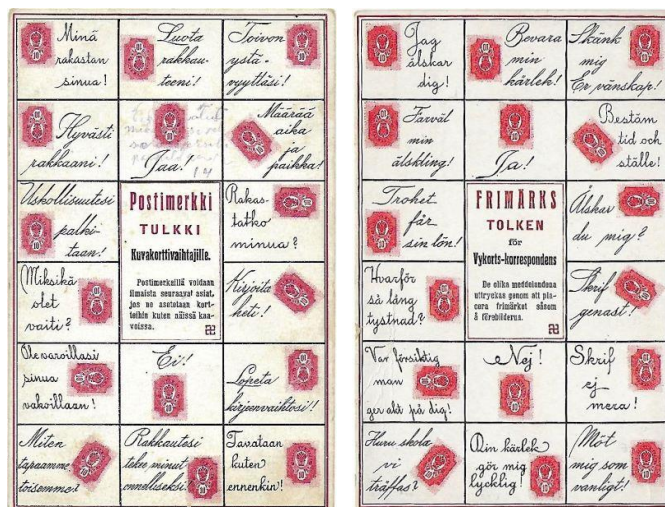 Minä
rakastan
sinua!
Luota
rakkau-
teeni!
Toivon
ystä-
vyyttäsi!
Hyvästi
rakkaani!
Jaa!
Määrää
aika
ja
paikka!
Uskollisuutesi
palki-
taan!
Postimerkki
TULKKI
Kuvakorttivaihtajille.
Postimerkeillä voidaan
ilmaista seuraavat asiat,
jos ne asetetaan kort-
teihin kuten näissä kaa-
voissa.
Rakas-
tatko
minua?
Miksikä
olet
vaiti?
Kirjoita
heti!
Ole varoillasi
sinua
vakoillaan!
Ei!
Lopeta
kirjeenvaihtosi!
Miten
tapaamme
toisemme?
Rakkautesi
tekee minut
onnelliseksi!
Tavataan
kuten
ennenkin!
Jag
älskar
dig!
Bevara
min
kärlek!
Skänk
mig
Er vänskap!
Farväl
min
älskling!
Ja!
Bestäm
tid och
ställe!
Trohet
får
sin lön!
FRIMÄRKS
TOLKEN
för
Vykorts-korrespondens
De olika meddelandena
uttryckas genom att pla-
cera frimärket såsom
å förebilderna.
Älskar
du mig?
Hvarför
så lång
tystnad?
Skrif
genast!
Var försiktig
man
ger akt på dig!
Nej!
Skrif
ej
mera!
Huru skola
vi
träffas?
Din kärlek
gör mig
lycklig!
Möt
mig som
vanligt!